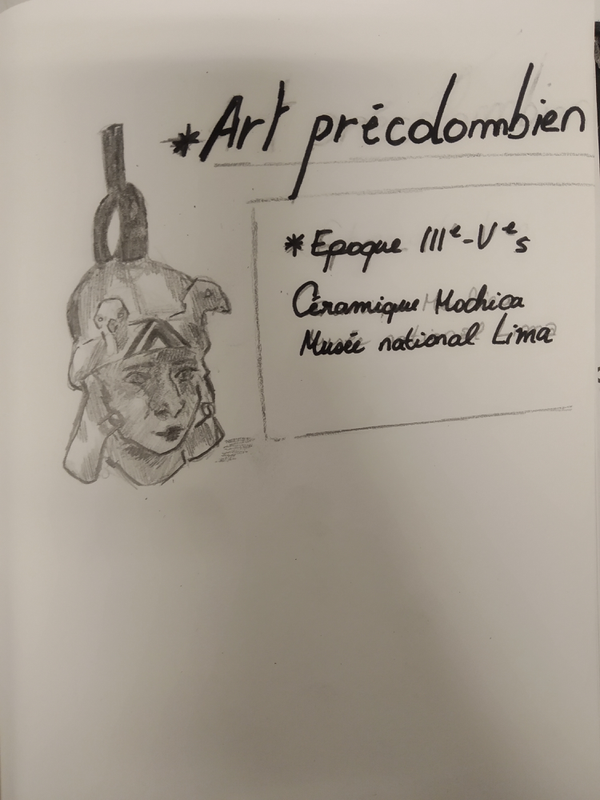 *Art précolombien
*Epoque IIIe-Ve s
Céramique Mochica
Musée national Lima